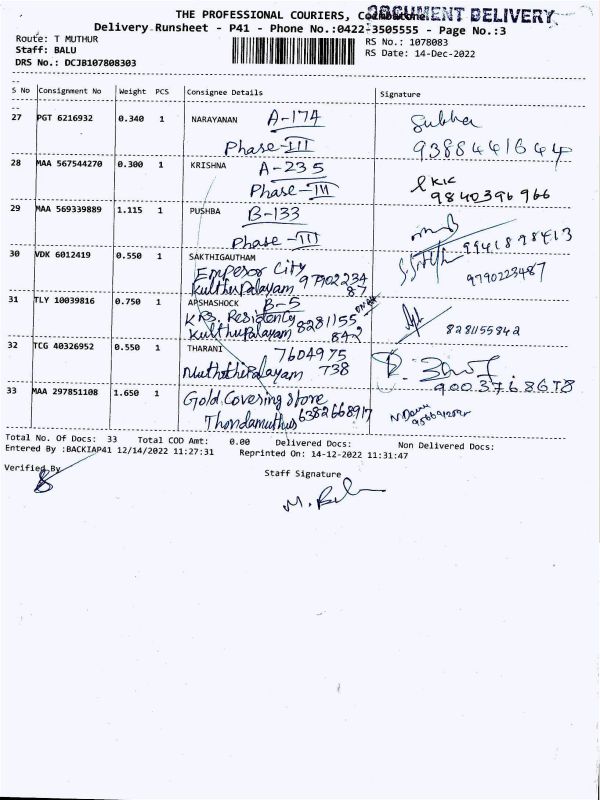 THE PROFESSIONAL COURIERS, Coimbatore
DOCUMENT DELIVERY
Delivery Runsheet - P41 - Phone No.:0422-3505555 - Page No.:3
Route: T MUTHUR
RS No.: 1078083
Staff: BALU
RS Date: 14-Dec-2022
DRS No.: DCJB107808303
S No Consignment No Weight PCS Consignee Details Signature
27 PGT 6216932 0.340 1 NARAYANAN A-174 Subha
Phase-III 9388441644
28 MAA 567544270 0.300 1 KRISHNA A-235
Phase-III 9840396966
29 MAA 569339889 1.115 1 PUSHBA B-133
Phase-III 9941898413
30 VDK 6012419 0.550 1 SAKTHIGAUTHAM
Emperor City 97902234
Kulthupalayam 87 9790223487
31 TLY 10039816 0.750 1 APSHASHOCK B-5
KRS. Residency 8281155
Kulthupalayam 842 8281155842
32 TCG 40326952 0.550 1 THARANI 7604975
Muththipalayam 738 9003768678
33 MAA 297851108 1.650 1 Gold Covering Store
Thondamuthur 6382668917
Total No. Of Docs: 33 Total COD Amt: 0.00 Delivered Docs: Non Delivered Docs:
Entered By :BACKIAP41 12/14/2022 11:27:31 Reprinted On: 14-12-2022 11:31:47
Verified By
Staff Signature